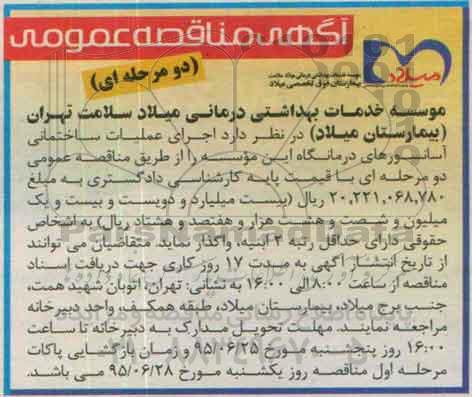 آگهی مناقصه عمومی
(دو مرحله ای)
میلاد
موسسه خدمات بهداشتی درمانی میلاد سلامت
بیمارستان فوق تخصصی میلاد
موسسه خدمات بهداشتی درمانی میلاد سلامت تهران
(بیمارستان میلاد) در نظر دارد اجرای عملیات ساختمانی
آسانسورهای درمانگاه این مؤسسه را از طریق مناقصه عمومی
دو مرحله ای با قیمت پایه کارشناسی دادگستری به مبلغ
۲۰,۲۲۱,۰۶۸,۷۸۰ ریال (بیست میلیارد و دویست و بیست و یک
میلیون و شصت و هشت هزار و هفتصد و هشتاد ریال) به اشخاص
حقوقی دارای حداقل رتبه ۴ ابنیه، واگذار نماید. متقاضیان می توانند
از تاریخ انتشار آگهی به مدت ۱۷ روز کاری جهت دریافت اسناد
مناقصه از ساعت ۸:۰۰ الی ۱۶:۰۰ به نشانی: تهران، اتوبان شهید همت،
جنب برج میلاد، بیمارستان میلاد، طبقه همکف، واحد دبیرخانه
مراجعه نمایند. مهلت تحویل مدارک به دبیرخانه تا ساعت
۱۶:۰۰ روز پنجشنبه مورخ ۹۵/۰۶/۲۵ و زمان بازگشایی پاکات
مرحله اول مناقصه روز یکشنبه مورخ ۹۵/۰۶/۲۸ می باشد.